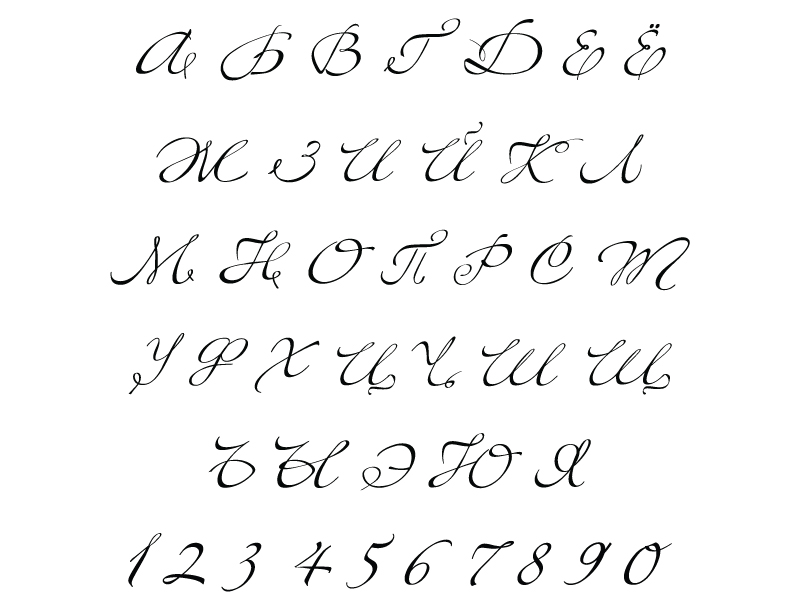 А Б В Г Д Е Ё
Ж З И Й К Л
М Н О П Р С Т
У Ф Х Ц Ч Ш Щ
Ъ Ы Э Ю Я
1 2 3 4 5 6 7 8 9 0